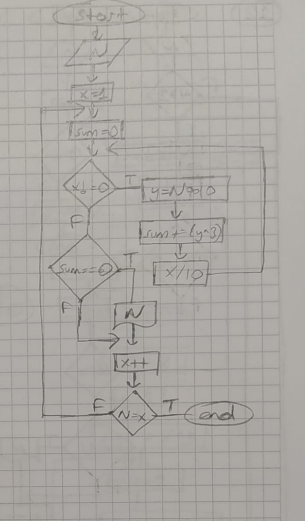 start
N
x=1
sum=0
T
y=N%10
F
sum+=(y^3)
x/10
sum==0
T
F
N
x++
F
N=x
T
end